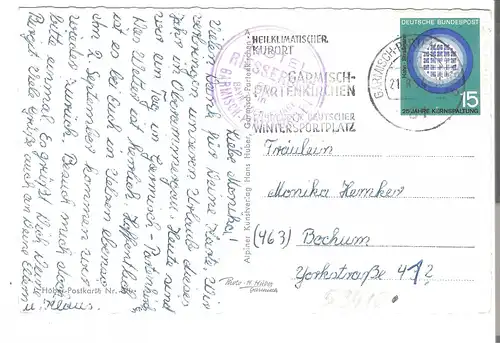 Liebe Monika!
Vielen Dank für Deine Karte. Wir
verbringen unseren Urlaub dieses
Jahr in Oberammergau. Heute sind
wir ein Tag in Garmisch-Partenkirchen.
Das Wetter ist herrlich. Hoffentlich
ist es bei Euch in Jetzen ebenso.
Am 2. September kommen wir
wieder zurück. Besuch mich doch
bitte einmal. Es grüßt Dich Deine
Margit. Viele Grüße auch an Deine Eltern
u. Klaus.
Huber-Postkarte Nr.
Alpiner Kunstverlag Hans Huber, Garmisch-Partenkirchen
Photo: H. Huber
Garmisch
HEILKLIMATISCHER
KURORT
GARMISCH-
PARTENKIRCHEN
DEUTSCHER
WINTERSPORTPLATZ
GARMISCH-PARTENKIRCHEN
DEUTSCHE BUNDESPOST
15
25 JAHRE KERNSPALTUNG
Fräulein
Monika Hemker
(463) Bochum
Yorkstraße 42